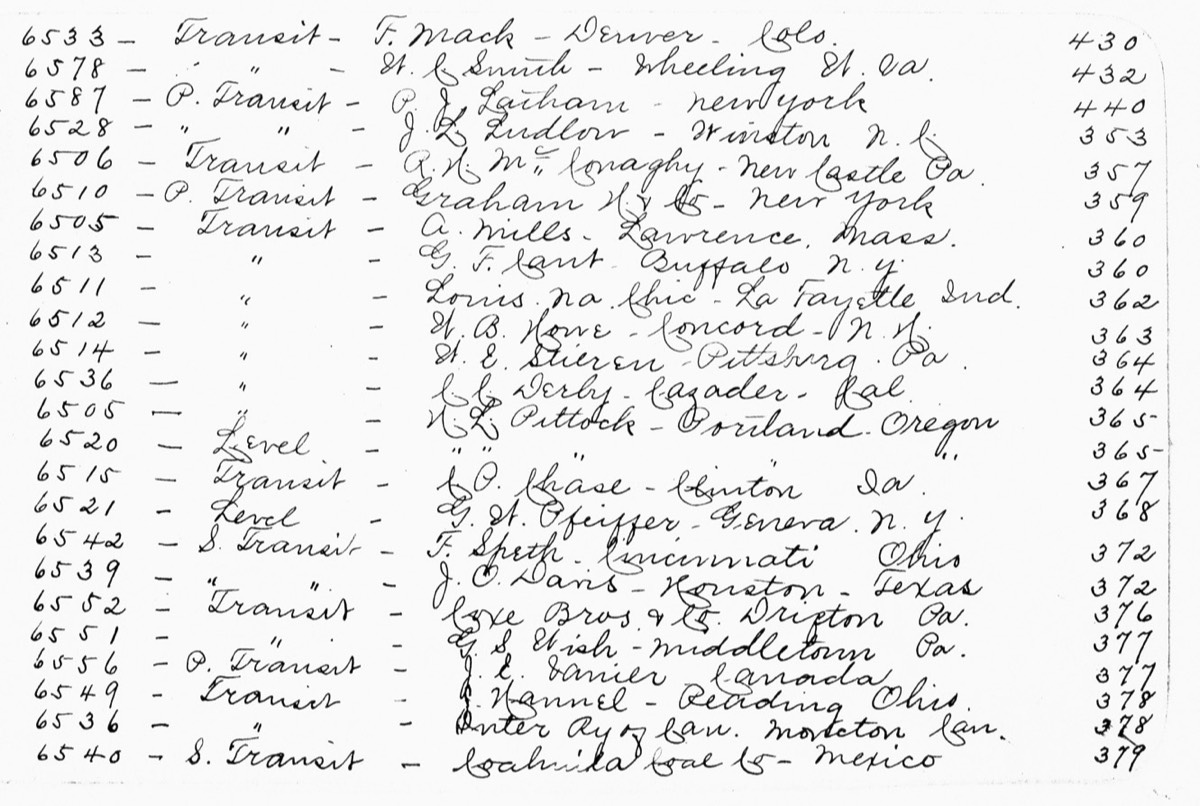 6533 - Transit - F. Mack - Denver - Colo. 430
6578 - " " - W. C. Smith - Wheeling W. Va. 432
6587 - P. Transit - P. J. Latham - New York 440
6528 - " " - J. L. Ludlow - Winston N. C. 353
6506 - Transit - A. H. Mc Conaghy - New Castle Pa. 357
6510 - P. Transit - Graham H. & Co - New York 359
6505 - Transit - A. Mills - Lawrence, Mass. 360
6513 - " - G. F. Cant - Buffalo N. Y. 360
6511 - " - Louis. Na. Chic - La Fayette Ind. 362
6512 - " - W. B. Howe - Concord - N. H. 363
6514 - " - W. E. Stieren - Pittsburg. Pa. 364
6536 - " - C. C. Derby - Cazader - Cal. 364
6505 - " - H. L. Pittock - Portland. Oregon 365-
6520 - Level - " " " " 365-
6515 - Transit - C. P. Chase - Clinton Ia. 367
6521 - Level - G. W. Pfeiffer - Geneva. N. Y. 368
6542 - S. Transit - F. Speth - Cincinnati Ohio 372
6539 - " " - J. O. Davis - Houston - Texas 372
6552 - Transit - Coxe Bros. & Co. Drifton Pa. 376
6551 - " - G. S. Wish - Middletown Pa. 377
6556 - P. Transit - J. E. Vanier Canada 377
6549 - Transit - Hannel - Reading Ohio. 378
6536 - " - Inter Ry of Can. Moncton Can. 378
6540 - S. Transit - Coahuila Coal Co - Mexico 379